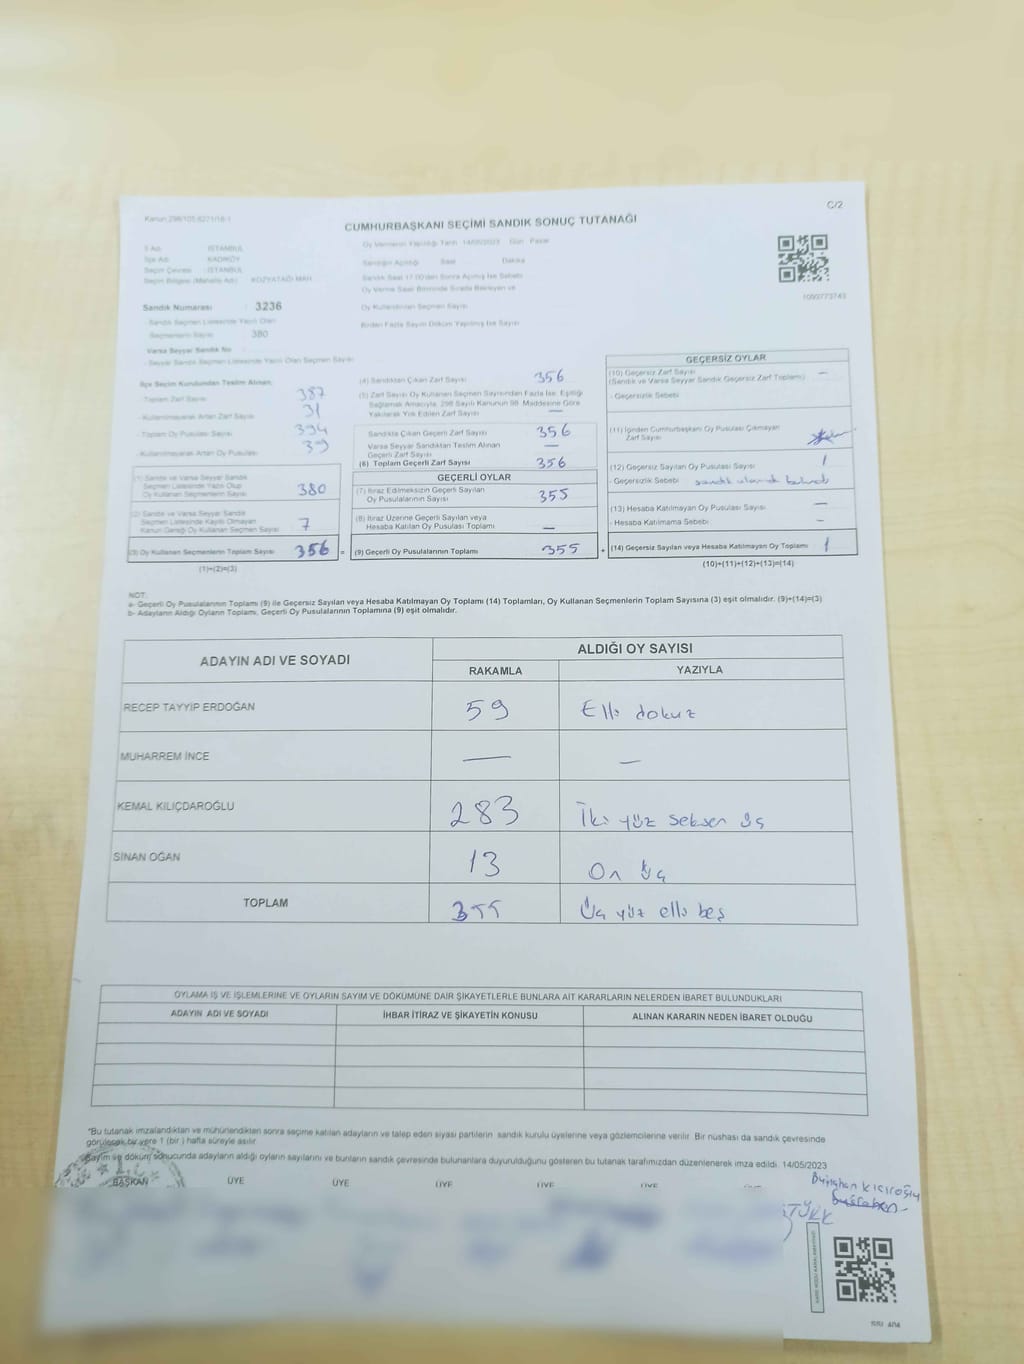 C/2
Kanun 298/105 6271/16-1
CUMHURBAŞKANI SEÇİMİ SANDIK SONUÇ TUTANAĞI
İl Adı : İSTANBUL
İlçe Adı : KADIKÖY
Seçim Çevresi : İSTANBUL
Seçim Bölgesi (Mahalle Adı) : KOZYATAĞI MAH.
Sandık Numarası : 3236
- Sandık Seçmen Listesinde Yazılı Olan
Seçmenlerin Sayısı : 380
Varsa Seyyar Sandık No
- Seyyar Sandık Seçmen Listesinde Yazılı Olan Seçmen Sayısı
Oy Vermenin Yapıldığı Tarih 14/05/2023 Gün Pazar
Sandığın Açıldığı Saat Dakika
Sandık Saat 17.00'den Sonra Açılmış İse Sebebi
Oy Verme Saati Bitiminde Sırada Bekleyen ve
Oy Kullandırılan Seçmen Sayısı
Birden Fazla Sayım Döküm Yapılmış İse Sayısı
1092773743
İlçe Seçim Kurulundan Teslim Alınan
- Toplam Zarf Sayısı 387
- Kullanılmayarak Artan Zarf Sayısı 31
- Toplam Oy Pusulası Sayısı 394
- Kullanılmayarak Artan Oy Pusulası 39
(1) Sandık ve Varsa Seyyar Sandık
Seçmen Listesinde Yazılı Olup
Oy Kullanan Seçmenlerin Sayısı 380
(2) Sandık ve Varsa Seyyar Sandık
Seçmen Listesinde Kayıtlı Olmayan
Kanun Gereği Oy Kullanan Seçmen Sayısı 7
(3) Oy Kullanan Seçmenlerin Toplam Sayısı 356 =
(1)+(2)=(3)
(4) Sandıktan Çıkan Zarf Sayısı 356
(5) Zarf Sayısı Oy Kullanan Seçmen Sayısından Fazla İse, Eşitliği
Sağlamak Amacıyla, 298 Sayılı Kanunun 98. Maddesine Göre
Yakılarak Yok Edilen Zarf Sayısı —
Sandıkta Çıkan Geçerli Zarf Sayısı 356
Varsa Seyyar Sandıktan Teslim Alınan
Geçerli Zarf Sayısı —
(6) Toplam Geçerli Zarf Sayısı 356
GEÇERLİ OYLAR
(7) İtiraz Edilmeksizin Geçerli Sayılan
Oy Pusulalarının Sayısı 355
(8) İtiraz Üzerine Geçerli Sayılan veya
Hesaba Katılan Oy Pusulası Toplamı —
(9) Geçerli Oy Pusulalarının Toplamı 355 +
GEÇERSİZ OYLAR
(10) Geçersiz Zarf Sayısı —
(Sandık ve Varsa Seyyar Sandık Geçersiz Zarf Toplamı)
- Geçersizlik Sebebi
(11) İçinden Cumhurbaşkanı Oy Pusulası Çıkmayan
Zarf Sayısı
(12) Geçersiz Sayılan Oy Pusulası Sayısı 1
- Geçersizlik Sebebi
(13) Hesaba Katılmayan Oy Pusulası Sayısı —
- Hesaba Katılmama Sebebi —
(14) Geçersiz Sayılan veya Hesaba Katılmayan Oy Toplamı 1
(10)+(11)+(12)+(13)=(14)
NOT:
a- Geçerli Oy Pusulalarının Toplamı (9) ile Geçersiz Sayılan veya Hesaba Katılmayan Oy Toplamı (14) Toplamları, Oy Kullanan Seçmenlerin Toplam Sayısına (3) eşit olmalıdır. (9)+(14)=(3)
b- Adayların Aldığı Oyların Toplamı, Geçerli Oy Pusulalarının Toplamına (9) eşit olmalıdır.
ADAYIN ADI VE SOYADI
ALDIĞI OY SAYISI
RAKAMLA YAZIYLA
RECEP TAYYİP ERDOĞAN 59 Elli dokuz
MUHARREM İNCE — —
KEMAL KILIÇDAROĞLU 283 İki yüz seksen üç
SİNAN OĞAN 13 On üç
TOPLAM 355 Üç yüz elli beş
OYLAMA İŞ VE İŞLEMLERİNE VE OYLARIN SAYIM VE DÖKÜMÜNE DAİR ŞİKAYETLERLE BUNLARA AİT KARARLARIN NELERDEN İBARET BULUNDUKLARI
ADAYIN ADI VE SOYADI İHBAR İTİRAZ VE ŞİKAYETİN KONUSU ALINAN KARARIN NEDEN İBARET OLDUĞU
"Bu tutanak imzalandıktan ve mühürlendikten sonra seçime katılan adayların ve talep eden siyasi partilerin sandık kurulu üyelerine veya gözlemcilerine verilir. Bir nüshası da sandık çevresinde
görülecek bir yere 1 (bir ) hafta süreyle asılır.
Sayım ve döküm sonucunda adayların aldığı oyların sayılarını ve bunların sandık çevresinde bulunanlara duyurulduğunu gösteren bu tutanak tarafımızdan düzenlenerek imza edildi. 14/05/2023
BAŞKAN ÜYE ÜYE ÜYE ÜYE ÜYE